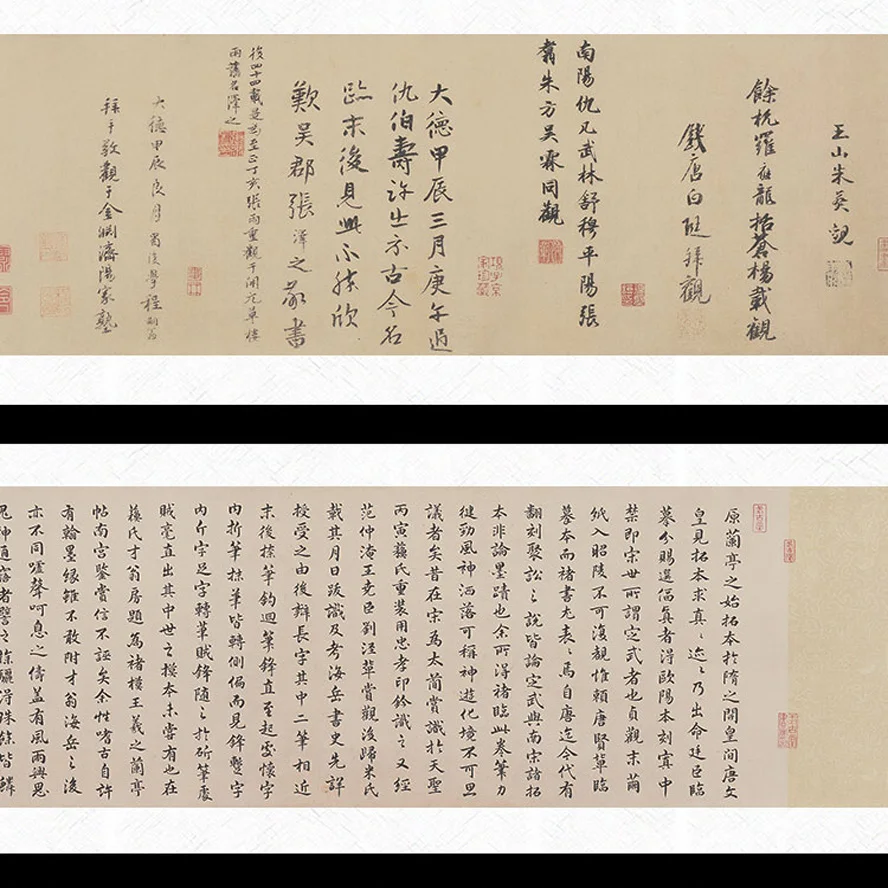 王山朱葵觀
餘杭羅應龍括蒼楊載觀
錢唐白珽拜觀
南陽仇几武林舒穆平陽張
翥朱方吳霖同觀
大德甲辰三月庚午過
仇伯壽許出示古今名
跡末後見此不勝欣
歎吳郡張澤之敬書
後四十四載是為至正丁亥張雨重觀于開元草樓
雨舊名澤之
大德甲辰良月蜀後學程嗣翁
拜手敬觀于金淵濟陽家塾
原蘭亭之始拓本於隋之開皇間唐文
皇見拓本求真〻迹〻乃出命廷臣臨
摹分賜選偪真者得歐陽本刻寘中
禁即宋世所謂定武者也貞觀末繭
紙入昭陵不可復覩惟賴唐賢草臨
摹本而褚書尤表〻焉自唐迄今代有
翻刻聚訟之說皆論定武與南宋諸拓
本非論墨蹟也余所得褚臨此卷筆力
徤勁風神洒落可稱神遊化境不可思
議者矣昔在宋為太簡賞識於天聖
丙寅蘓氏重裝用忠孝印鈐識之又經
范仲淹王堯臣劉涇輩賞觀後歸米氏
載其月日跋識及考海岳書史先詳
授受之由後辯長字其中二筆相近
末後捺筆鈎迴筆鋒直至起處懷字
内折筆抹筆皆轉側偏而見鋒蹔字
内斤字足字轉筆賊鋒隨之於斫筆處
賊毫直出其中世之摸本未嘗有也在
蘓氏才翁房題為褚模王羲之蘭亭
帖南宮鑒賞信不誣矣余性嗜古自許
有翰墨缘雖不敢附才翁海岳之後
亦不同嘘聲呵息之儔蓋有風雨興思
鬼神通寤者譬之探驪得珠餘皆鱗